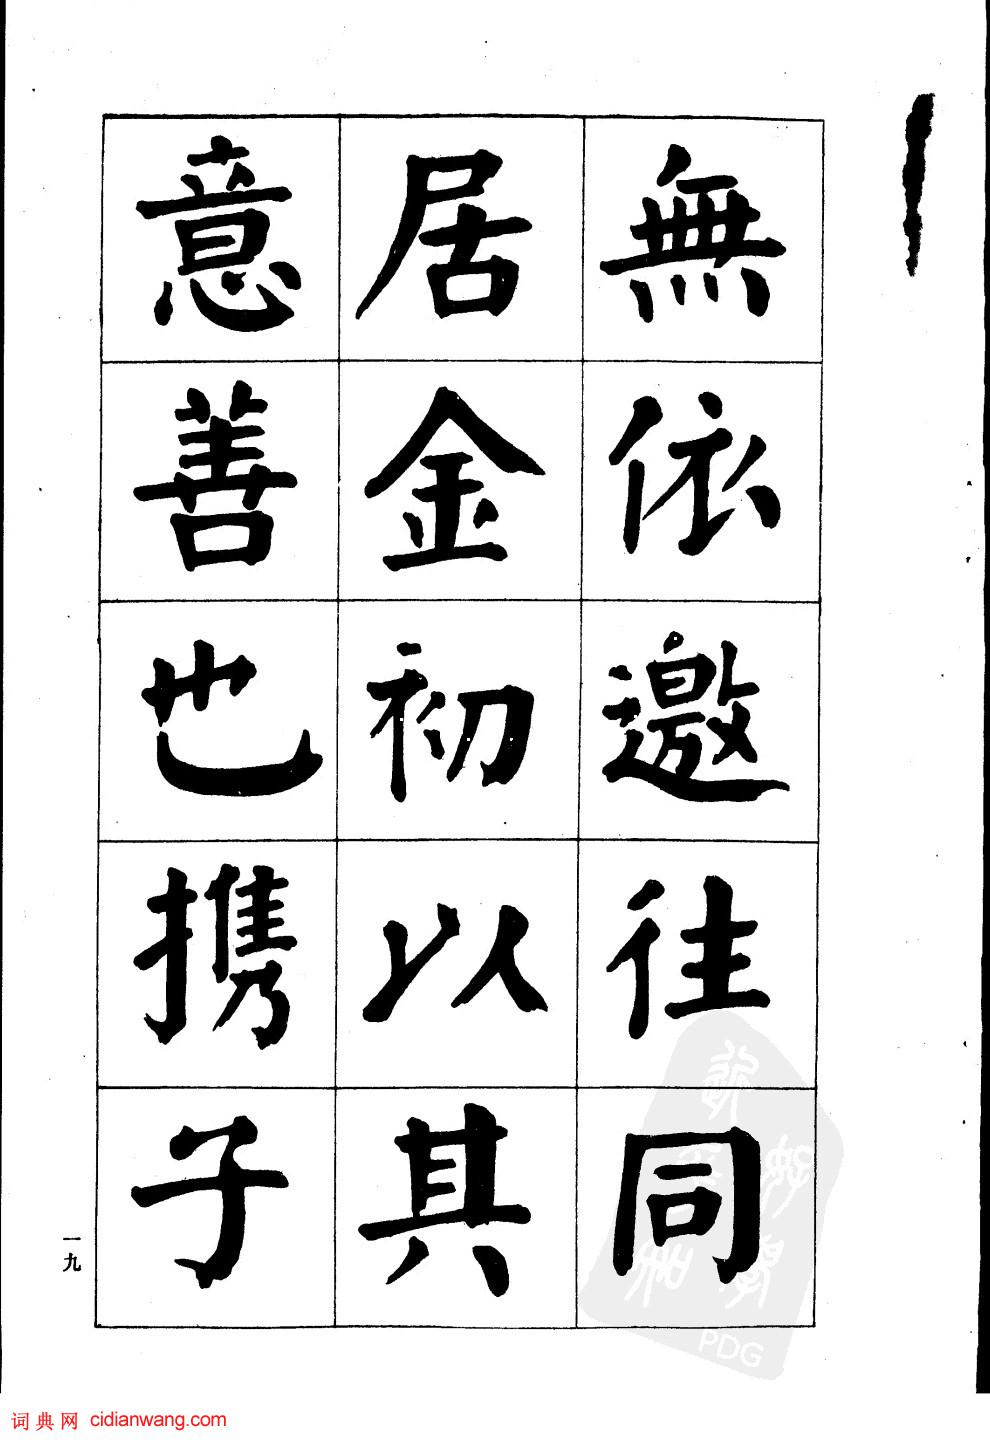 無依邀往同
居金初以其
意善也携子
一九
PDG
词典网 cidianwang.com